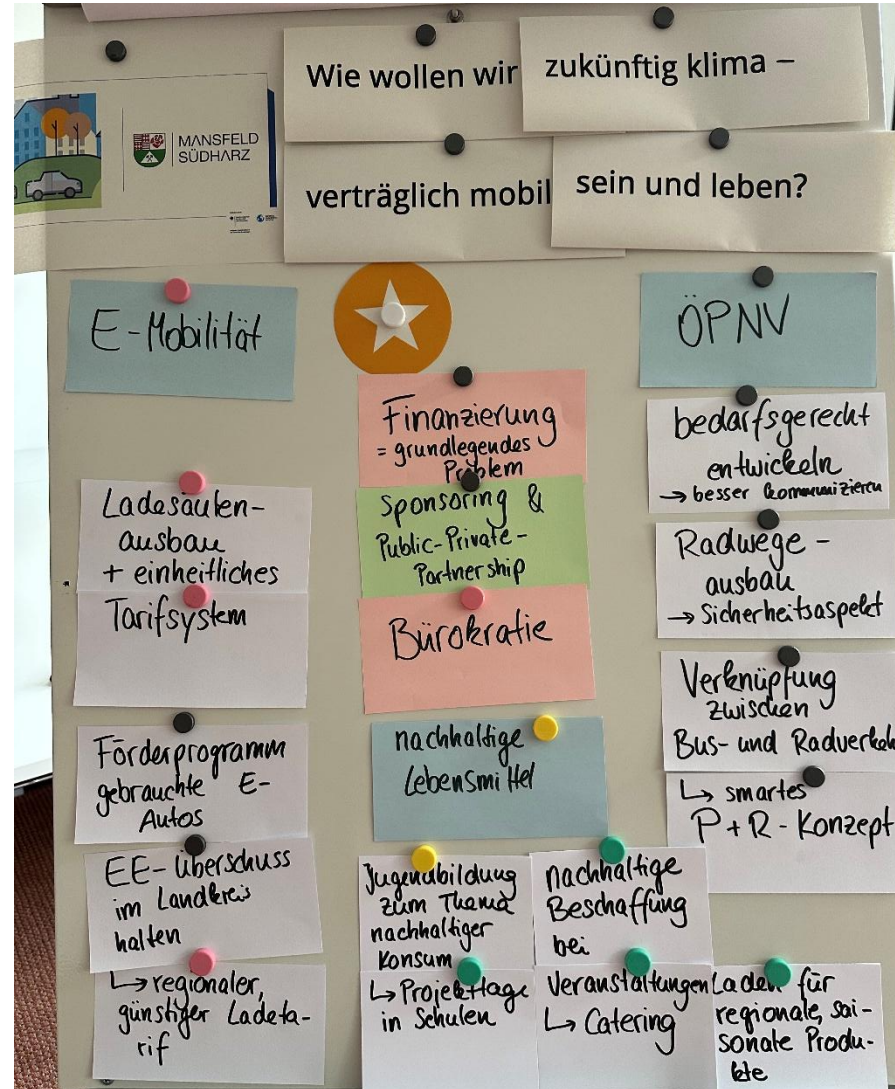 Wie wollen wir zukünftig klima –
verträglich mobil sein und leben?
MANSFELD
SÜDHARZ
E-Mobilität
Ladesäulen-
ausbau
+ einheitliches
Tarifsystem
Förderprogramm
gebrauchte E-
Autos
EE-Überschuss
im Landkreis
halten
↳ regionaler,
günstiger Ladeta-
rif
Finanzierung
= grundlegendes
Problem
Sponsoring &
Public-Private-
Partnership
Bürokratie
nachhaltige
Lebensmittel
Jugendbildung
zum Thema
nachhaltiger
Konsum
↳ Projekttage
in Schulen
nachhaltige
Beschaffung
bei
Veranstaltungen
↳ Catering
Laden für
regionale, sai-
sonale Produ-
kte
ÖPNV
bedarfsgerecht
entwickeln
→ besser kommunizieren
Radwege-
ausbau
→ Sicherheitsaspekt
Verknüpfung
zwischen
Bus- und Radverkeh
↳ smartes
P+R-Konzept